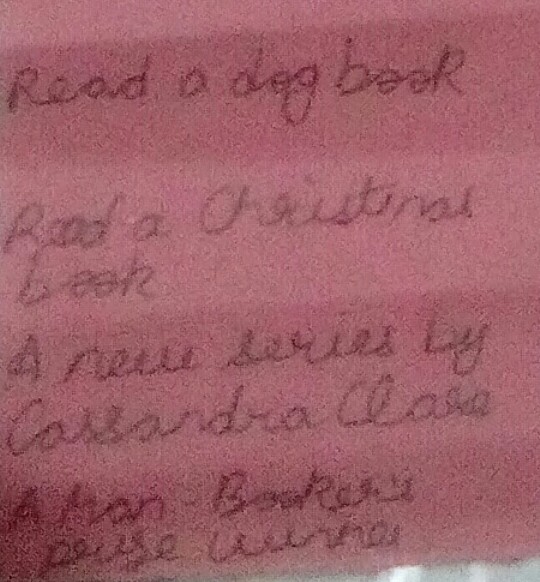 Read a dog book
Read a Christmas
book
A new series by
Cassandra Clare
A Man Bookers
prize winner